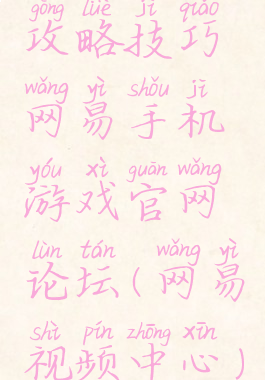 gōng lüè jì qiǎo
攻略技巧
wǎng yì shǒu jī
网易手机
yóu xì guān wǎng
游戏官网
lùn tán wǎng yì
论坛(网易
shì pín zhōng xīn
视频中心)